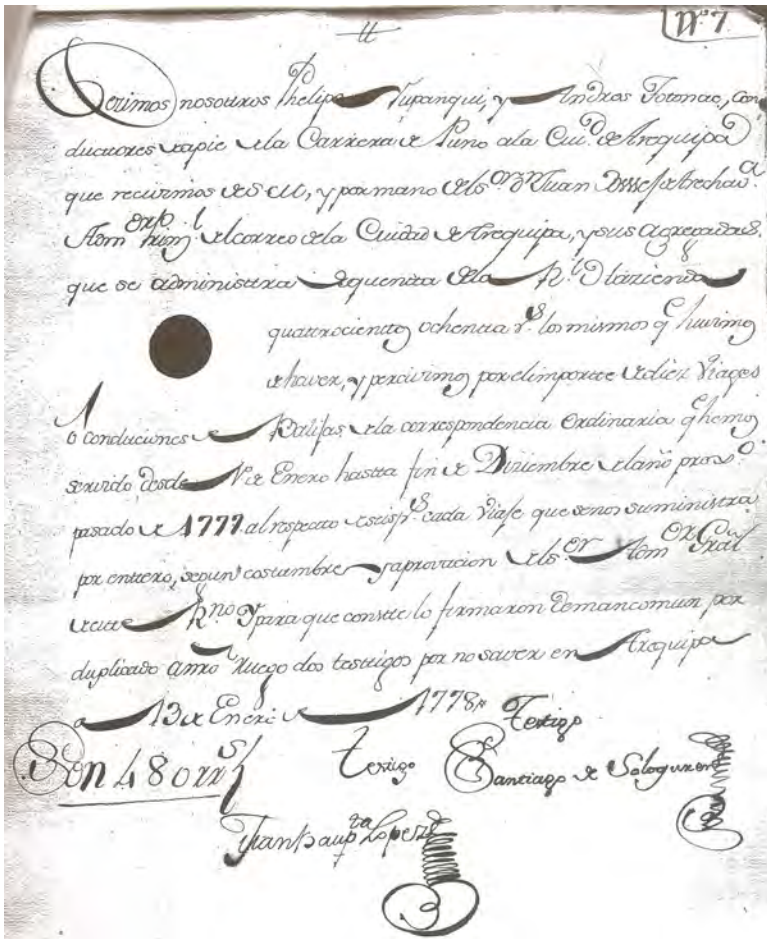 Nº 7
Dezimos nosotros Phelipe Yupanqui, y Andres Totoncio, con
ductores de apie de la Carrera de Puno ala Ciu.d de Arequipa
que recivimos de S.M., y por mano del s.or D.n Juan Arechav.a
Adm.or prin.l del correo de la Ciudad de Arequipa, y sus Agregadas
que se administra de quenta de la R.l Hazienda
quatrocientos ochenta r.s los mismos q.e huvimos
de haver, y percivimos por el importe de diez Viages
o conduciones de Balijas de la correspondencia Ordinaria q.e hemos
servido, desde 1.º de Enero hasta fin de Diziembre del año prox.o
pasado de 1777. al respecto de seis p.s cada Viaje que senos suministra
por entero, segun costumbre y aprovacion del s.or Adm.or Gral
de este R.no Y para que conste lo firmaron de mancomun por
duplicado a nro Ruego dos testigos por no saver en Arequipa
a 13 de Enero de 1778
Testigo
Son 480 rr.s
testigo
Santiago de Sologuren
Juan Baup.ta Lopez